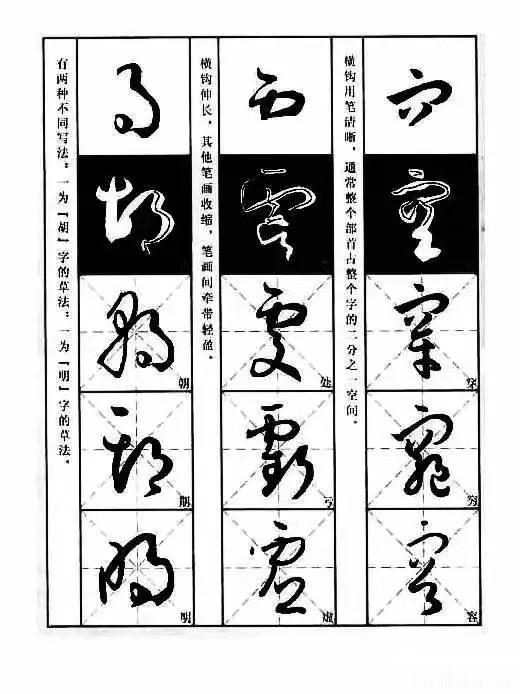 横钩用笔清晰，通常整个部首占整个字的二分之一空间。
穿
穷
容
横钩伸长，其他笔画收缩，笔画间牵带轻盈。
处
亏
虚
有两种不同写法：一为『胡』字的草法；一为『明』字的草法。
朝
期
明